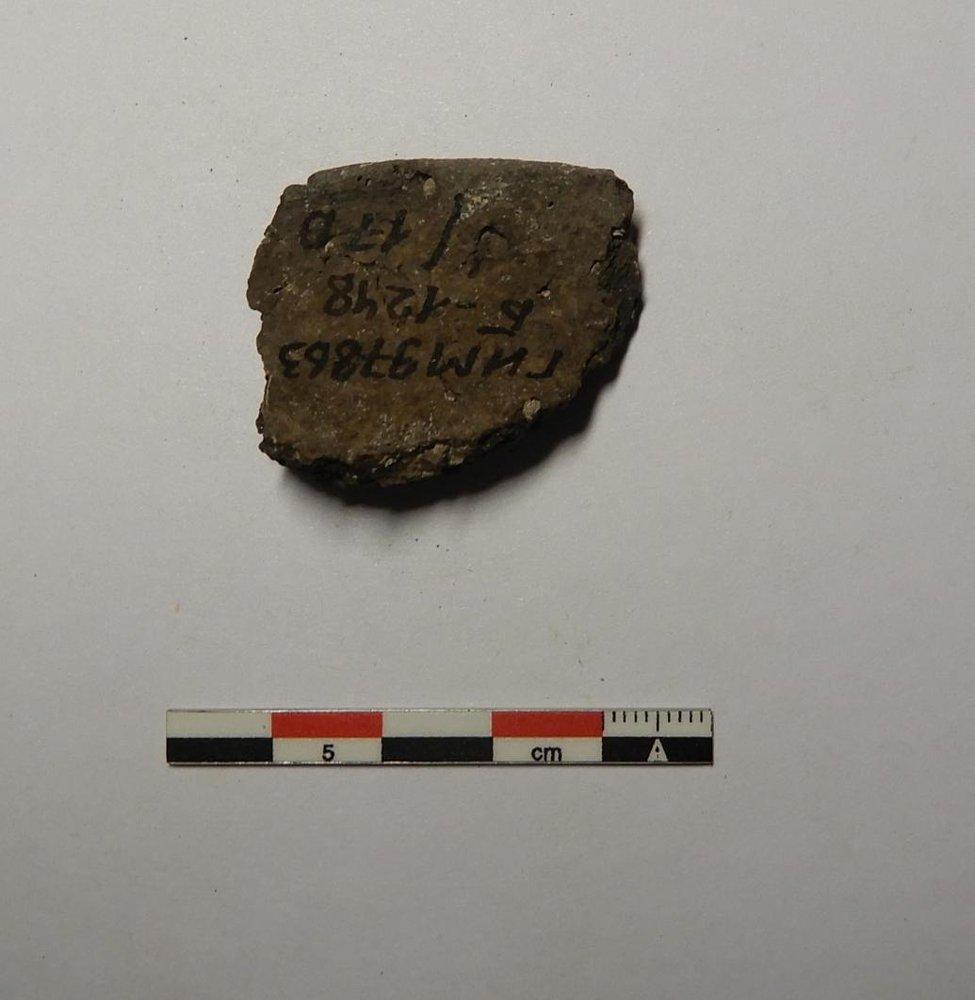 ГИМ 97863
Б-1248
17 D
5 cm